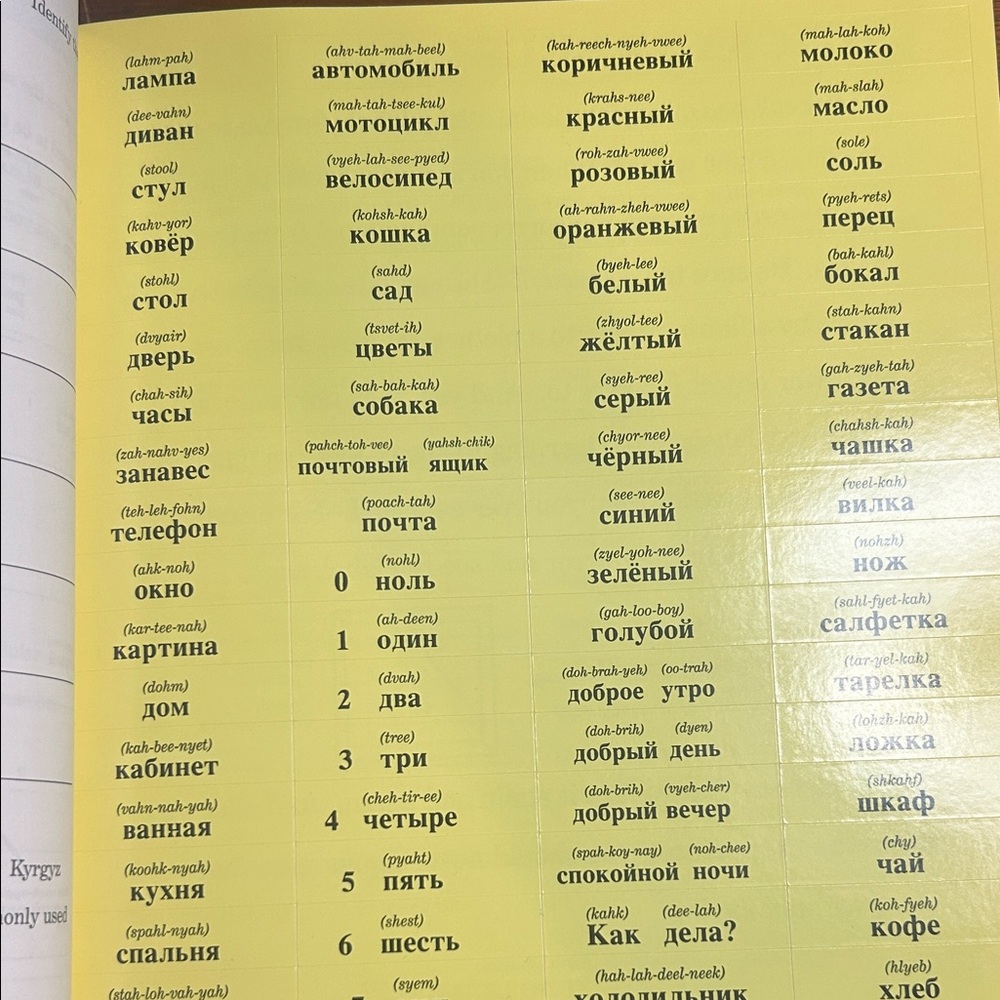 Identify
Kyrgyz
only used
(lahm-pah)
лампа
(dee-vahn)
диван
(stool)
стул
(kahv-yor)
ковёр
(stohl)
стол
(dvyair)
дверь
(chah-sih)
часы
(zah-nahv-yes)
занавес
(teh-leh-fohn)
телефон
(ahk-noh)
окно
(kar-tee-nah)
картина
(dohm)
дом
(kah-bee-nyet)
кабинет
(vahn-nah-yah)
ванная
(koohk-nyah)
кухня
(spahl-nyah)
спальня
(stah-loh-vah-yah)
(ahv-tah-mah-beel)
автомобиль
(mah-tah-tsee-kul)
мотоцикл
(vyeh-lah-see-pyed)
велосипед
(kohsh-kah)
кошка
(sahd)
сад
(tsvet-ih)
цветы
(sah-bah-kah)
собака
(pahch-toh-vee) (yahsh-chik)
почтовый ящик
(poach-tah)
почта
(nohl)
0 ноль
(ah-deen)
1 один
(dvah)
2 два
(tree)
3 три
(cheh-tir-ee)
4 четыре
(pyaht)
5 пять
(shest)
6 шесть
(syem)
(kah-reech-nyeh-vwee)
коричневый
(krahs-nee)
красный
(roh-zah-vwee)
розовый
(ah-rahn-zheh-vwee)
оранжевый
(byeh-lee)
белый
(zhyol-tee)
жёлтый
(syeh-ree)
серый
(chyor-nee)
чёрный
(see-nee)
синий
(zyel-yoh-nee)
зелёный
(gah-loo-boy)
голубой
(doh-brah-yeh) (oo-trah)
доброе утро
(doh-brih) (dyen)
добрый день
(doh-brih) (vyeh-cher)
добрый вечер
(spah-koy-nay) (noh-chee)
спокойной ночи
(kahk) (dee-lah)
Как дела?
(hah-lah-deel-neek)
холодильник
(mah-lah-koh)
молоко
(mah-slah)
масло
(sole)
соль
(pyeh-rets)
перец
(bah-kahl)
бокал
(stah-kahn)
стакан
(gah-zyeh-tah)
газета
(chahsh-kah)
чашка
(veel-kah)
вилка
(nohzh)
нож
(sahl-fyet-kah)
салфетка
(tar-yel-kah)
тарелка
(lohzh-kah)
ложка
(shkahf)
шкаф
(chy)
чай
(koh-fyeh)
кофе
(hlyeb)
хлеб